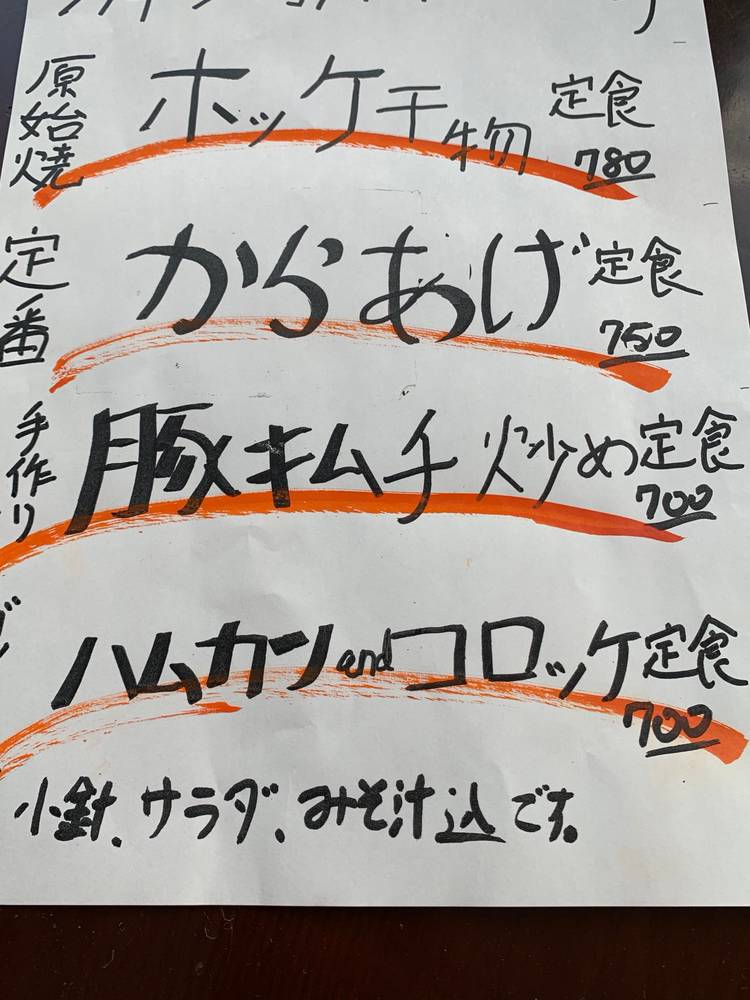 原始焼 ホッケ干物 定食 780
定番 からあげ 定食 750
手作り 豚キムチ炒め定食 700
ハムカツandコロッケ定食 700
小針、サラダ、みそ汁込です。